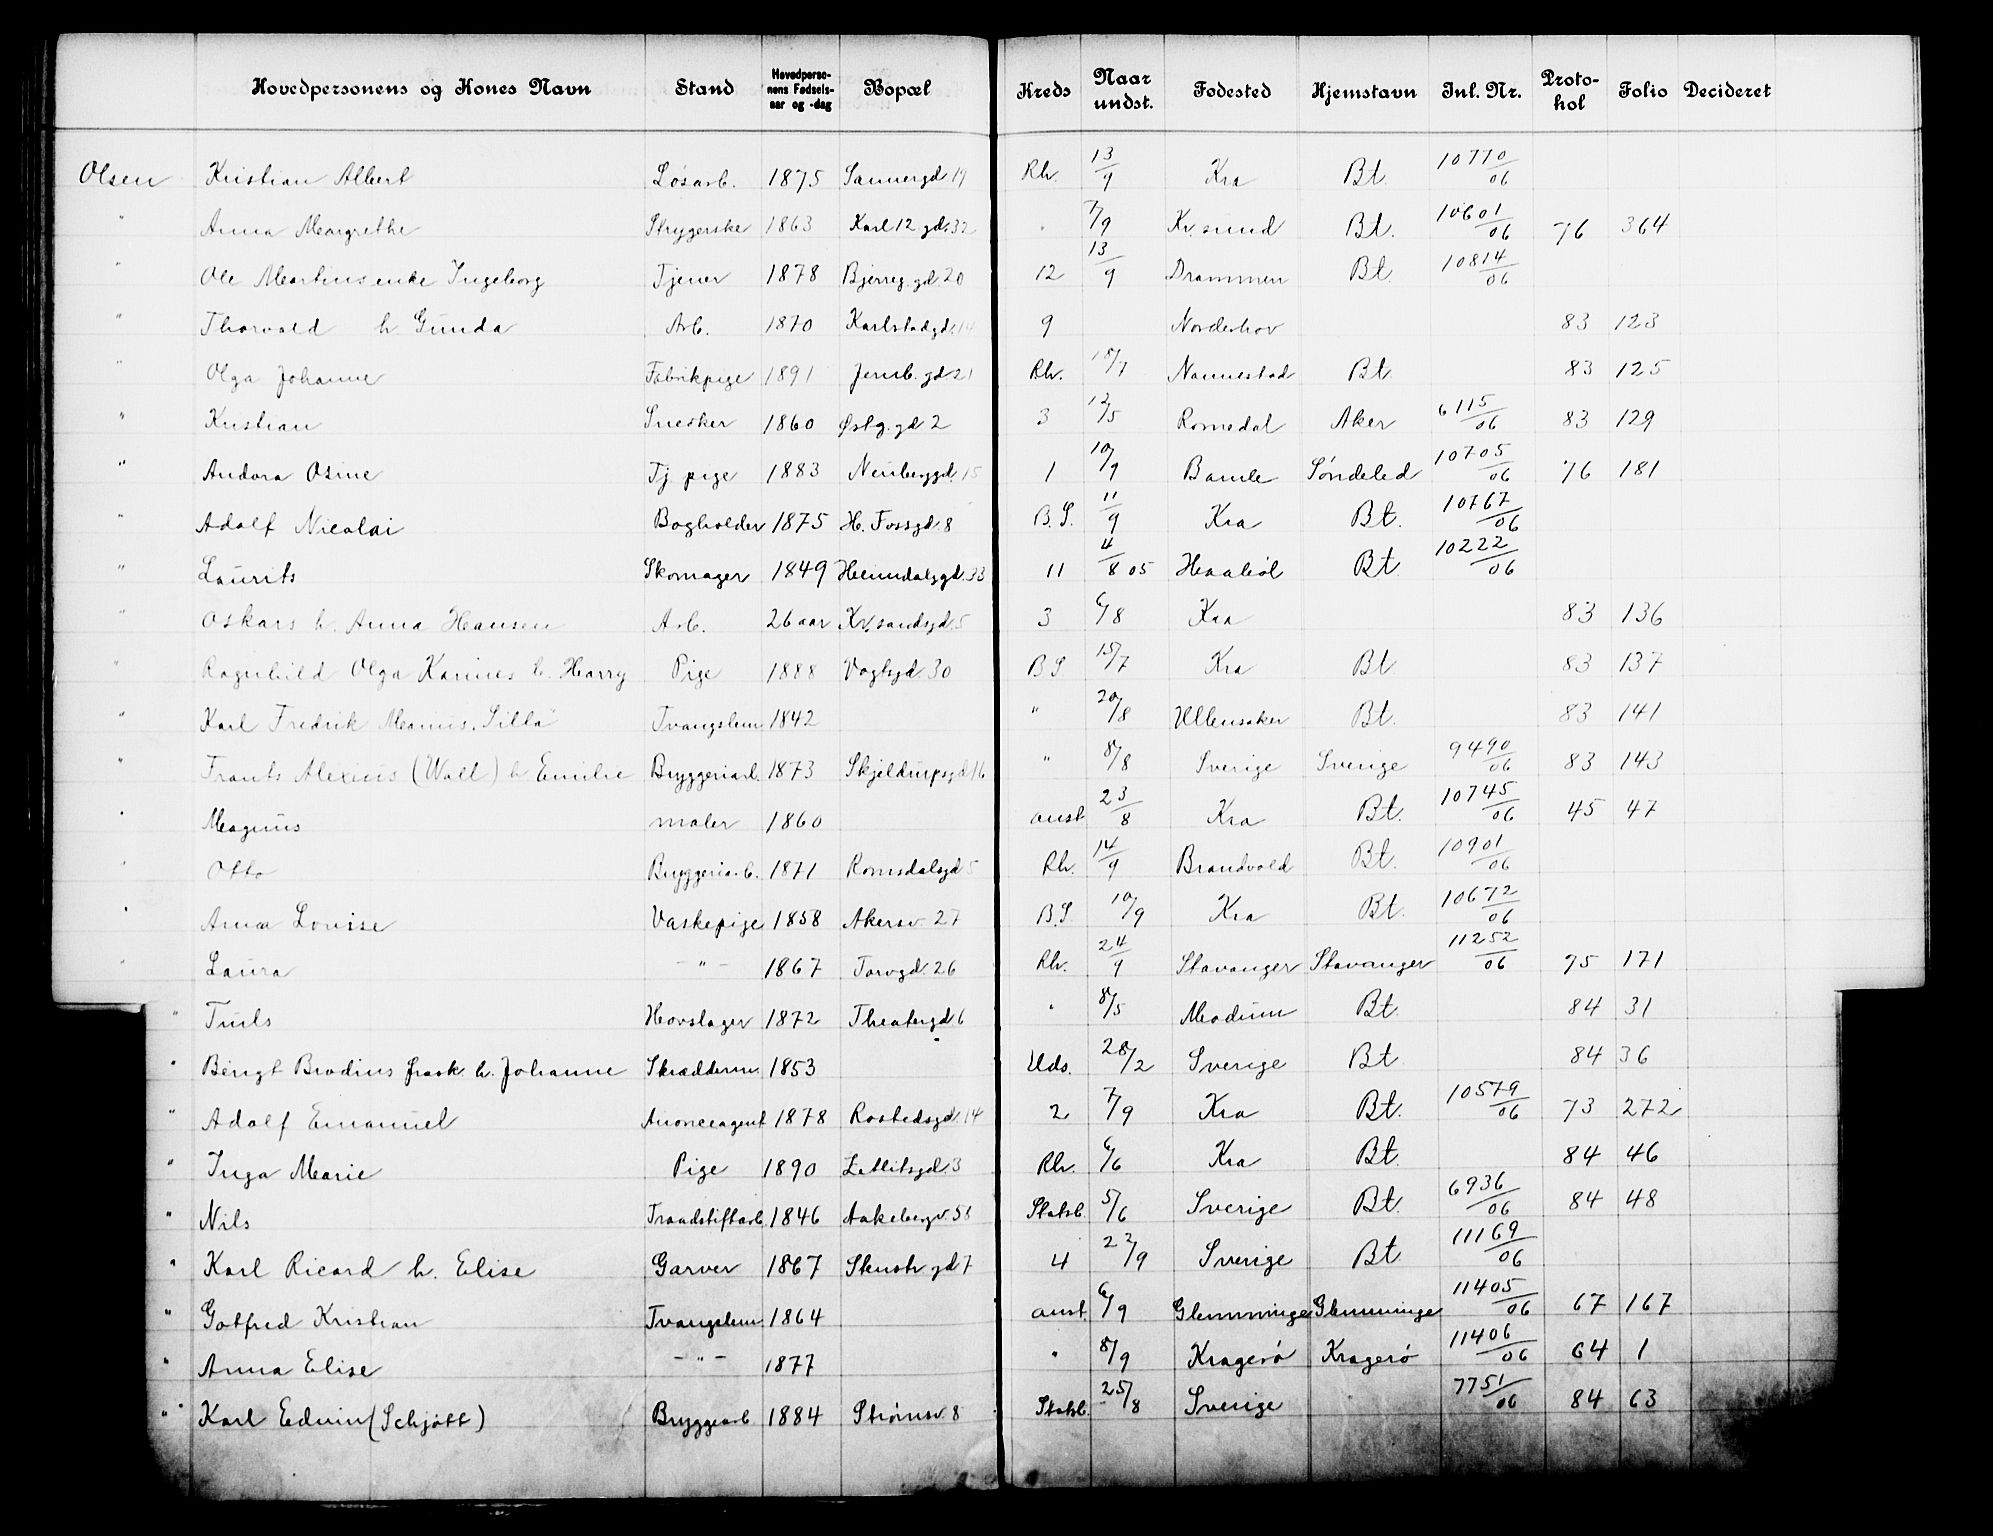 Hovedpersonens og Kones Navn | Stand | Hovedpersonens Fødselsaar og -dag | Bopæl | Kreds | Naar undst. | Fødested | Hjemstavn | Inl. Nr. | Protokol | Folio | Decideret
Olsen Kristian Albert | Løsarb. | 1875 | Sannergd 19 | Rh. | 13/9 | Kra | Bt. | 10770/06
" Anna Margrethe | Strygerske | 1863 | Karl 12 gd. 32 | " | 7/9 | Kr. sund | Bt. | 10601/06 | 76 | 364
" Ole Martins enke Ingeborg | Tjener | 1878 | Bjerreg. gd. 20 | 12 | 13/9 | Drammen | Bt. | 10814/06
" Thorvald h. Gunda | Arb. | 1870 | Karlstadgd. 14 | 9 | Norderhov | 83 | 123
" Olga Johanne | Fabrikpige | 1891 | Jernb. gd 21 | Rh. | 18/7 | Nannestad | Bt. | 83 | 125
" Kristian | Snedker | 1860 | Østg. gd 2 | 3 | 12/5 | Romedal | Aker | 6115/06 | 83 | 129
" Andora Osine | Tj pige | 1883 | Neuberggd. 15 | 1 | 10/9 | Bamle | Søndeled | 10705/06 | 76 | 181
" Adolf Nicolai | Bogholder | 1875 | H. Fossgd. 8 | B.S. | 11/9 | Kra | Bt. | 10767/06
" Laurits | Skomager | 1849 | Heimdalsgd. 33 | 11 | 4/8 05 | Haabøl | Bt. | 10222/06
" Oskars h. Anna Hansen | Arb. | 26 aar | Kr. sandsgd. 5 | 3 | 6/8 | Kra | 83 | 136
" Ragnhild Olga Karines h. Harry | Pige | 1888 | Vogtsgd. 30 | B S | 15/7 | Kra | Bt. | 83 | 137
" Karl Fredrik Marius. | Tvangslem | 1842 | " | 20/8 | Ullensaker | Bt. | 83 | 141
" Frants Alexius (Wall) h Emilie | Bryggeriarb. | 1873 | Skjeldrupsgd 16 | " | 8/8 | Sverige | Sverige | 9490/06 | 83 | 143
" Magnus | maler | 1860 | anst | 23/8 | Kra | Bt. | 10745/06 | 45 | 47
" Otto | Bryggeriarb. | 1871 | Romsdalsgd 5 | Rh. | 14/9 | Brandvold | Bt. | 10901/06
" Anna Lovise | Vaskepige | 1858 | Akersv. 27 | B.S | 10/9 | Kra | Bt. | 10672/06
" Laura | - " - | 1867 | Torvgd. 26 | Rh. | 24/9 | Stavanger | Stavanger | 11252/06 | 75 | 171
" Truls | Hovslager | 1872 | Theatergd. 6 | " | 8/5 | Modum | Bt. | 84 | 31
" Bengt Brodins frask. h. Johanne | Skrædderm. | 1853 | Uds. | 28/2 | Sverige | Bt | 84 | 36
" Adolf Emanuel | Anonceagent | 1878 | Rostedsgd. 14 | 2 | 7/9 | Kra | Bt. | 10579/06 | 73 | 272
" Inga Marie | Pige | 1890 | | Rh. | 6/6 | Kra | Bt. | 84 | 46
" Nils | Traadstiftarb. | 1846 | Aakebergv. 58 | Statsb. | 5/6 | Sverige | Bt. | 6936/06 | 84 | 48
" Karl Ricard h. Elise | Garver | 1867 | Stenstr gd 7 | 4 | 22/9 | Sverige | Bt | 11169/06
" Gotfred Kristian | Tvangslem | 1864 | anst. | 6/9 | Glemminge | Glemminge | 11405/06 | 67 | 167
" Anna Elise | - " - | 1877 | " | 8/9 | Kragerø | Kragerø | 11406/06 | 64 | 1
" Karl Edvin (Schjøtt) | Bryggearb | 1884 | Strømsv. 8 | Statsb. | 25/8 | Sverige | 7751/06 | 84 | 63